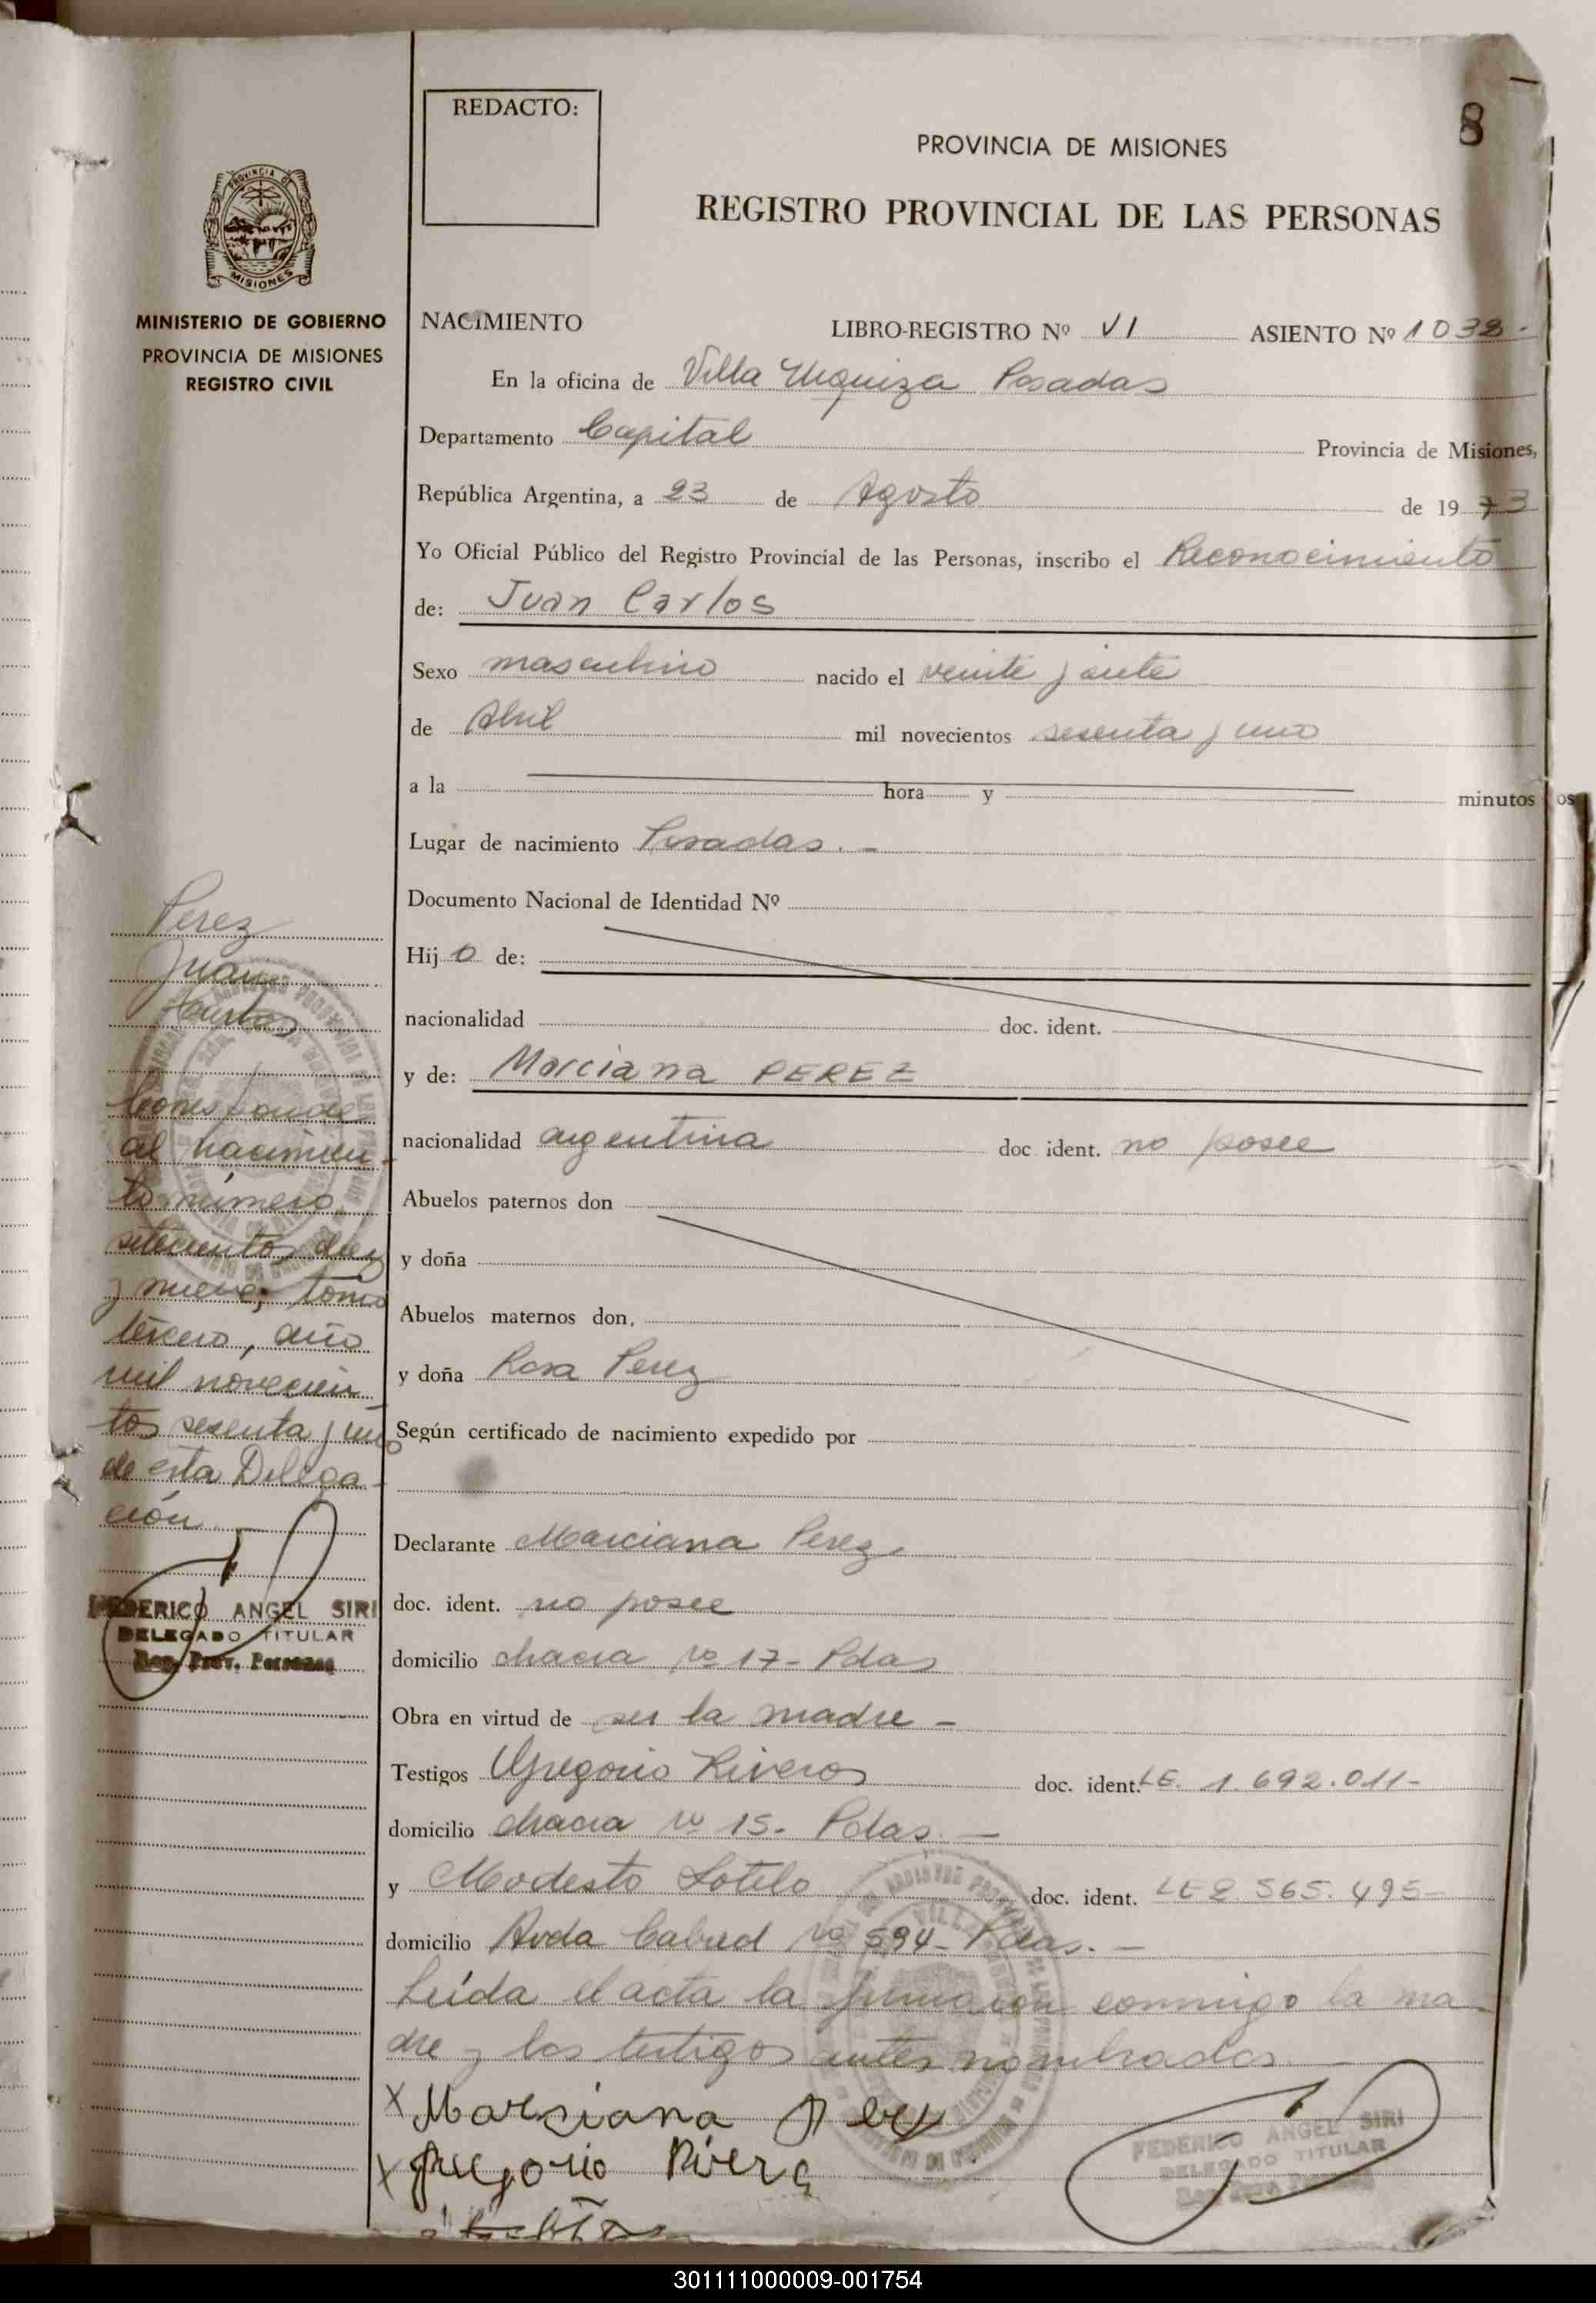 REDACTO:
8
PROVINCIA DE MISIONES
REGISTRO PROVINCIAL DE LAS PERSONAS
MISIONES
MINISTERIO DE GOBIERNO
PROVINCIA DE MISIONES
REGISTRO CIVIL
NACIMIENTO LIBRO-REGISTRO Nº VI ASIENTO Nº 1038.-
En la oficina de Villa Urquiza Posadas
Departamento Capital Provincia de Misiones,
República Argentina, a 23 de Agosto de 1973
Yo Oficial Público del Registro Provincial de las Personas, inscribo el Reconocimiento
de: Juan Carlos
Sexo masculino nacido el veinte y siete
de Abril mil novecientos sesenta y uno
a la hora y minutos
Lugar de nacimiento Posadas.-
Documento Nacional de Identidad Nº
Hijo de:
nacionalidad doc. ident.
y de: Marciana PEREZ
nacionalidad argentina doc. ident. no posee
Abuelos paternos don
y doña
Abuelos maternos don.
y doña Rosa Perez
Según certificado de nacimiento expedido por
Declarante Marciana Perez
doc. ident. no posee
domicilio chacra no 17- Pdas
Obra en virtud de ser la madre -
Testigos Gregorio Riveros doc. ident. LE. 1.692.011-
domicilio chacra no 15- Pdas.-
y Modesto Sotelo doc. ident. LE 2.565.495-
domicilio Avda Cabred no 594- Pdas.-
Leída el acta la firmaron conmigo la ma
dre y los testigos antes nombrados.-
x Marciana Perez
x Gregorio Rivero
FEDERICO ANGEL SIRI
DELEGADO TITULAR
Reg. Prov. Personas
Perez
Juan
Carlos
Corresponde
al nacimien-
to número
setecientos diez
y nueve, tomo
tercero, año
mil novecien
tos sesenta y uno
de esta Delega-
ción
FEDERICO ANGEL SIRI
DELEGADO TITULAR
Reg. Prov. Personas
301111000009-001754